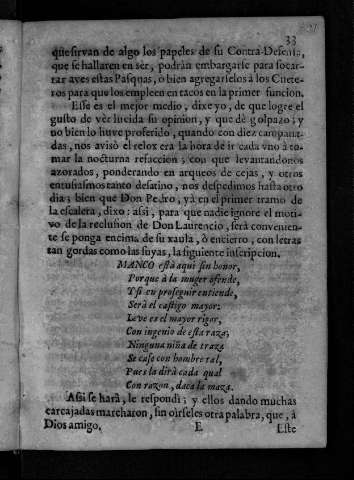 33
que sirvan de algo los papeles de su Contra-Defensa,
que se hallaren en ser, podràn embargarse para socar-
rar aves estas Pasquas, ò bien agregarselos à los Cuete-
ros para que los empleen en tacos en la primer funcion.
Esse es el mejor medio, dixe yo, de que logre el
gusto de vèr lucida su opinion, y que dè golpazo; y
no bien lo huve proferido, quando con diez campana-
das, nos avisò el relox era la hora de ir cada vno à to-
mar la nocturna refaccion; con que levantandonos
azorados, ponderando en arqueos de cejas, y otros
entusiasmos tanto desatino, nos despedimos hasta otro
dia; bien que Don Pedro, yà en el primer tramo de
la escalera, dixo: assi, para que nadie ignore el moti-
vo de la reclusion de Don Laurencio, serà convenien-
te se ponga encima de su xaula, ò encierro, con letras
tan gordas como las suyas, la siguiente inscripcion.
MANCO està aqui sin honor,
Porque à la muger ofende,
Y si en proseguir entiende,
Serà el castigo mayor:
Leve es el mayor rigor,
Con ingenio de esta raza;
Ninguna niña de traza
Se case con hombre tal,
Pues la dirà cada qual
Con razon, daca la maza.
Assi se harà, le respondì; y ellos dando muchas
carcajadas marcharon, sin oirseles otra palabra, que, à
Dios amigo. E Este